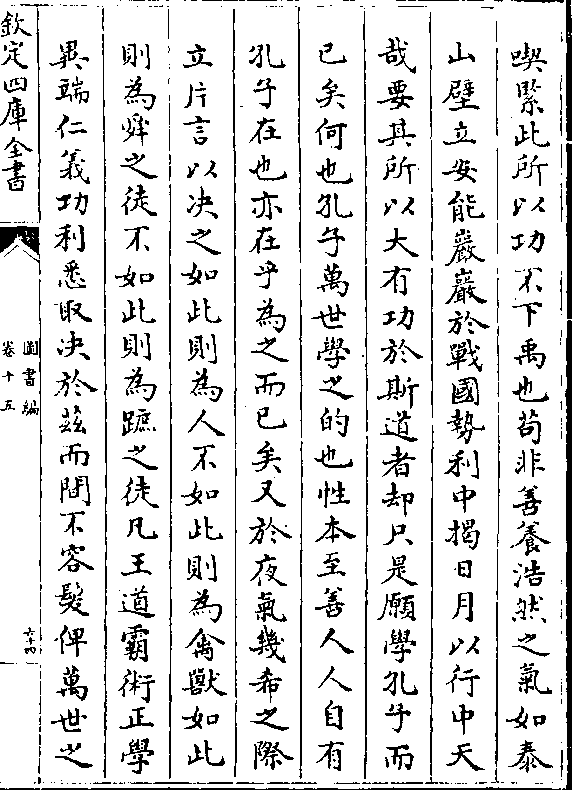 喫緊此所以功不下禹也茍非善養浩然之氣如泰
山壁立安能巖巖於戰國勢利中揭日月以行中天
哉要其所以大有功於斯道者却只是願學孔子而
已矣何也孔子萬世學之的也性本至善人人自有
孔子在也亦在乎為之而已矣又於夜氣幾希之際
立片言以决之如此則為人不如此則為禽獸如此
則為舜之徒不如此則為蹠之徒凡王道霸術正學
異端仁義功利悉取决於茲而間不容髮俾萬世之
欽定四庫全書
圖書編
卷十五
六十四